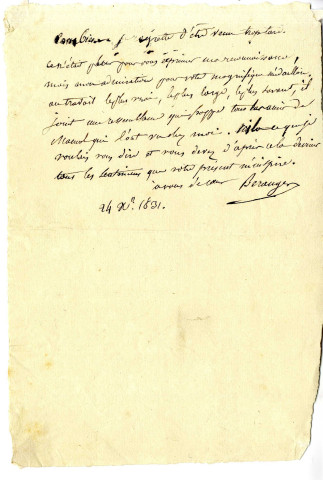 Combien je regrette d'être venu trop tard.
Ce n'était pas pour vous exprimer ma reconnaissance,
mais mon admiration pour votre magnifique médaillon.
au travail le plus vrai, le plus large, le plus savant, il
joint une ressemblance qui frappe tous les amis de
Manuel qui l'ont vu chez moi. Voilà ce que je
voulais vous dire et vous devez d'après cela deviner
tous les sentimens que votre présent m'inspire.
à vous de cœur Béranger
24 Xbre 1831.